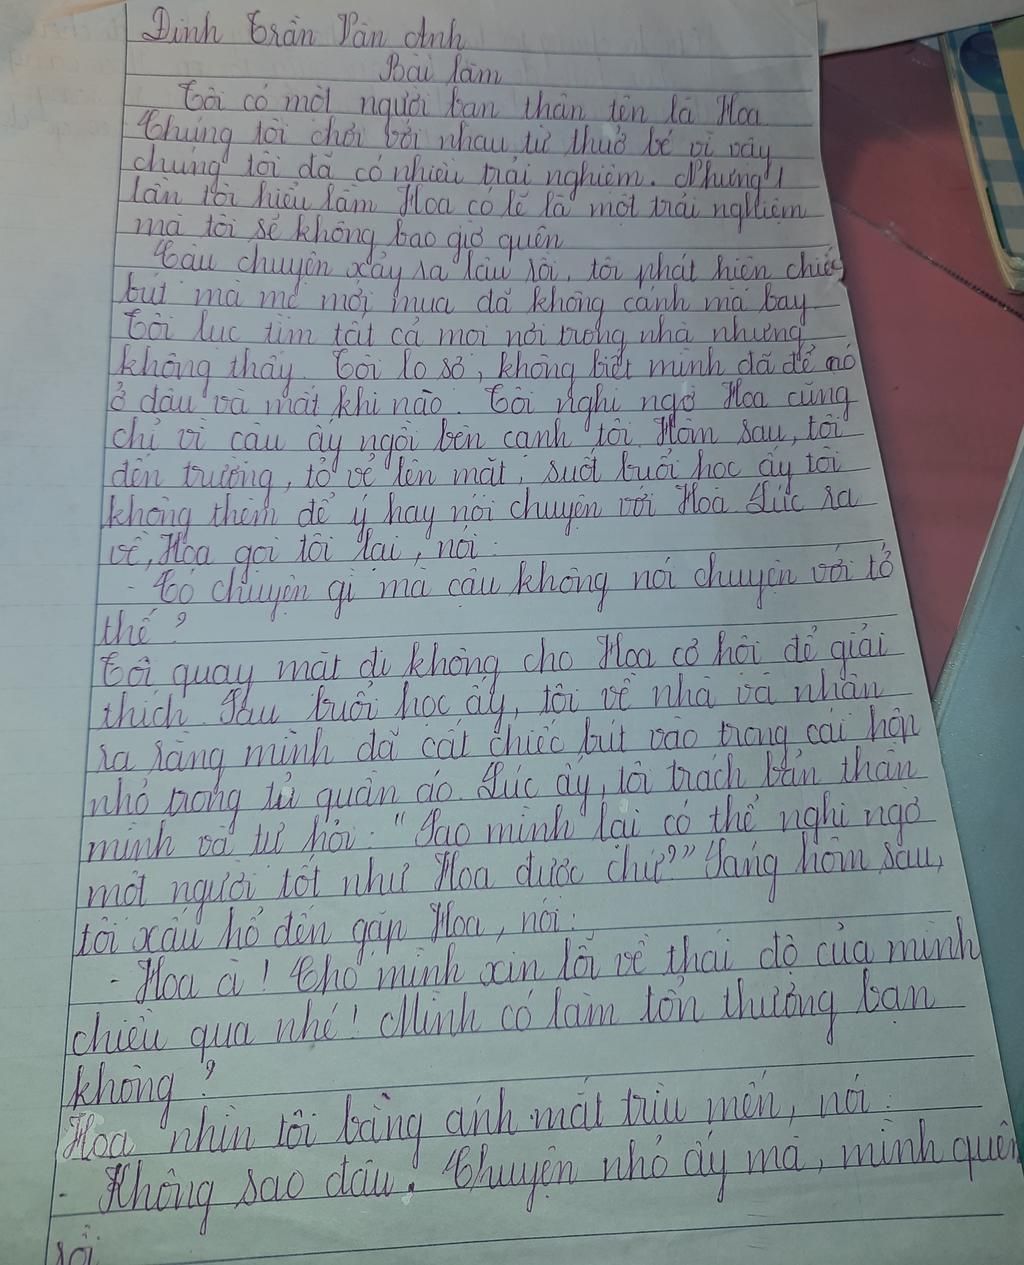 Đinh Trần Vân Anh
Bài làm
Tôi có một người bạn thân tên là Hoa
Chúng tôi chơi với nhau từ thuở bé vì vậy
chúng tôi đã có nhiều trải nghiệm. Nhưng 1
lần tôi hiểu lầm Hoa có lẽ là một trải nghiệm
mà tôi sẽ không bao giờ quên
Câu chuyện xảy ra lâu rồi, tôi phát hiện chiếc
bút mà mẹ mới mua đã không cánh mà bay
Tôi lục tìm tất cả mọi nơi trong nhà nhưng
không thấy. Tôi lo sợ, không biết mình đã để nó
ở đâu và mất khi nào. Tôi nghi ngờ Hoa cũng
chỉ vì cậu ấy ngồi bên cạnh tôi. Hôm sau, tôi
đến trường, tỏ vẻ lên mặt, suốt buổi học ấy tôi
không thèm để ý hay nói chuyện với Hoa. Lúc ra
về, Hoa gọi tôi lại, nói:
- Có chuyện gì mà cậu không nói chuyện với tớ
thế?
Tôi quay mặt đi không cho Hoa cơ hội để giải
thích. Sau buổi học ấy, tôi về nhà và nhận
ra rằng mình đã cất chiếc bút vào trong cái hộp
nhỏ trong tủ quần áo. Lúc ấy, tôi trách bản thân
mình và tự hỏi: "Sao mình lại có thể nghi ngờ
một người tốt như Hoa được chứ?" Sáng hôm sau,
tôi xấu hổ đến gặp Hoa, nói:
- Hoa à! Cho mình xin lỗi về thái độ của mình
chiều qua nhé! Mình có làm tổn thương bạn
không?
Hoa nhìn tôi bằng ánh mắt trìu mến, nói:
- Không sao đâu. Chuyện nhỏ ấy mà, mình quên
rồi.